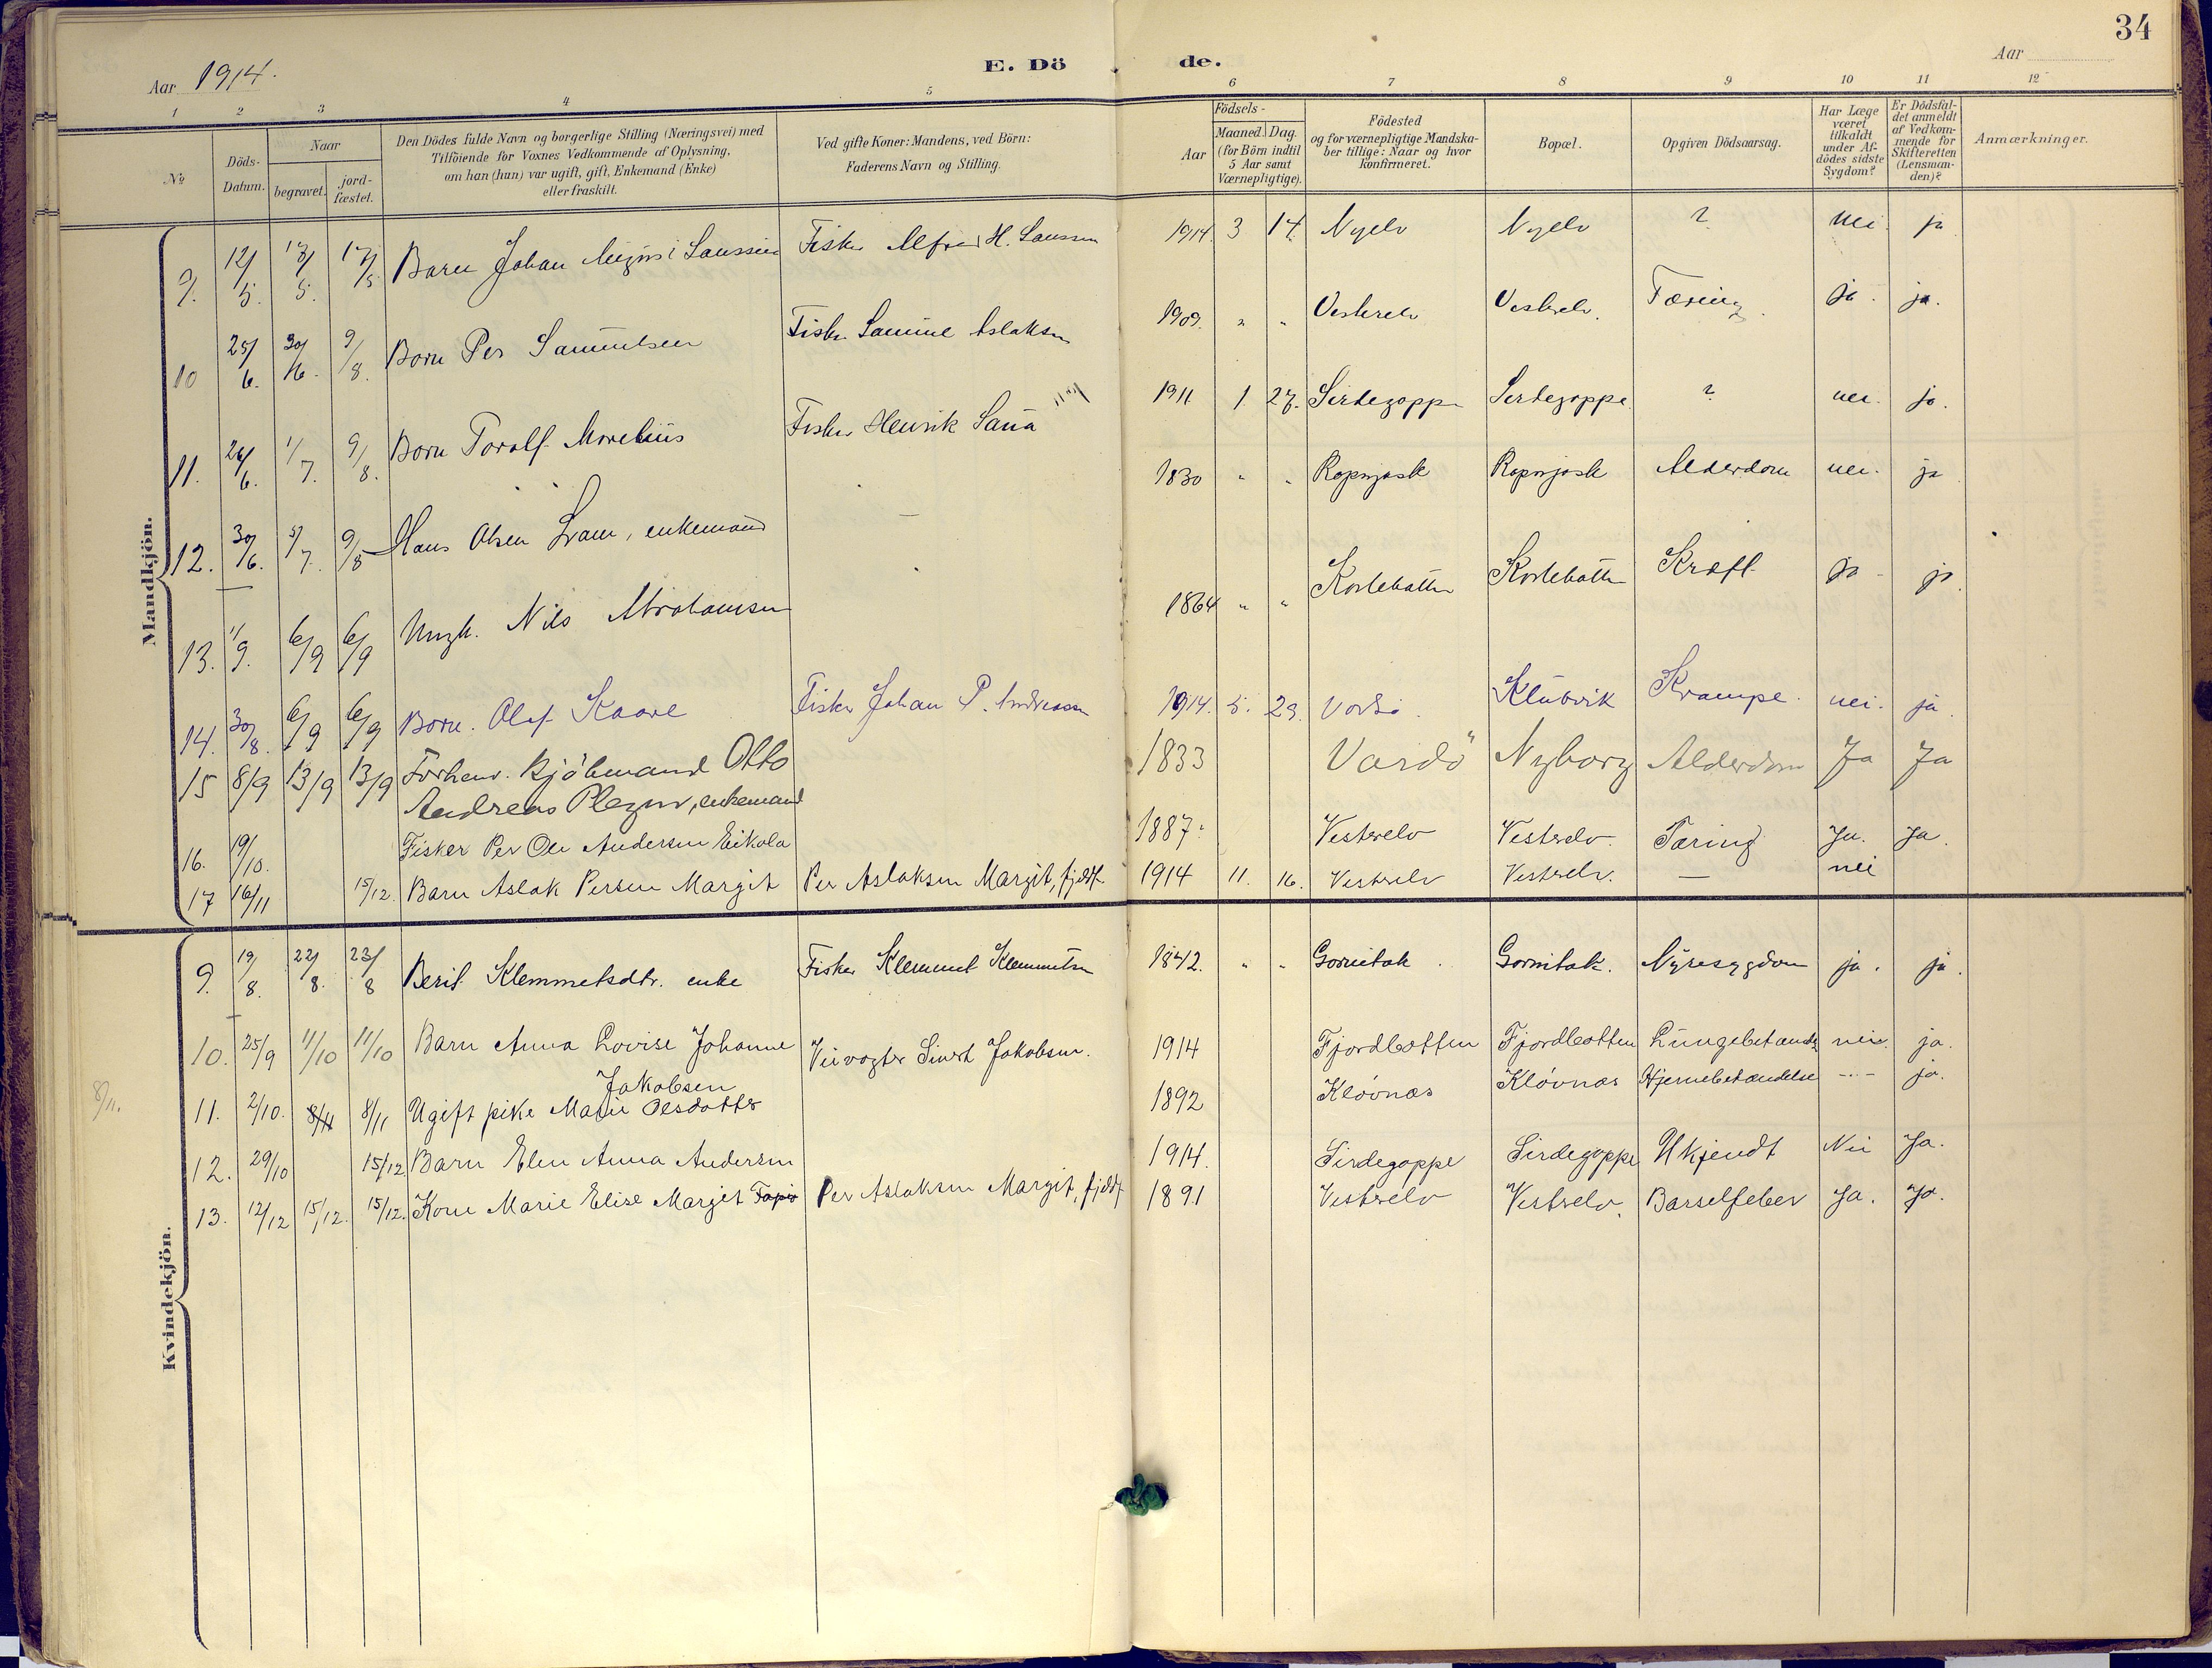 34
Aar 1914.
E. Döde.
Aar
1 2 3 4 5 6 7 8 9 10 11 12
№
Döds-Datum.
Naar
begravet.
jord-fæstet.
Den Dödes fulde Navn og borgerlige Stilling (Næringsvei) med
Tilföiende for Voxnes Vedkommende af Oplysning,
om han (hun) var ugift, gift, Enkemand (Enke)
eller fraskilt.
Ved gifte Koner: Mandens, ved Börn:
Faderens Navn og Stilling.
Födsels-
Aar
Maaned. Dag.
(for Börn indtil
5 Aar samt
Værnepligtige).
Födested
og for værnepligtige Mandska-
ber tillige: Naar og hvor
konfirmeret.
Bopæl.
Opgiven Dödsaarsag.
Har Læge
været
tilkaldt
under Af-
dödes sidste
Sygdom?
Er Dödsfal-
det anmeldt
af Vedkom-
mende for
Skifteretten
(Lensman-
den)?
Anmærkninger.
Mandkjön.
9. 12/5. 17/5. 17/5 Barn Johan Fisker Alfred H. 1914. 3 14. Nyelv Nyelv ? nei ja
10 25/6. 30/6. 9/8. Barn Per Samuelsen Fisker Samuel Aslaksen 1909. " " Vesterelv Vesterelv. Tæring. ja. ja.
11. 26/6. 1/7. 9/8. Barn Toralf Fisker Henrik 1911 1 27. Sirdegoppe Sirdegoppe. ? nei. ja.
12. 30/6. 5/7. 9/8 Hans Olsen enkemand – 1830 " " Ropnjask Ropnjask Alderdom nei. ja
13. 1/9. 6/9 6/9 Ungk. Nils Abrahamsen 1864 " " Kræft ja ja.
14. 30/8. 6/9 6/9 Barn. Olaf Kaare Fisker Johan P. Andreassen 1914. 5. 29. Vadsö. Klubvik Krampe. nei. ja.
15 8/9 13/9 13/9 Forhenv. Kjöbmand Otto 1833 Vardö Nyborg Alderdom Ja Ja
Andreas enkemand
16. 19/10. Fisker Per Ole Andersen Eikola 1887. Vesterelv Vesterelv. Tæring Ja. Ja.
17 16/11 15/12. Barn Aslak Persen Margit Per Aslaksen Margit, fjeldf. 1914 11. 16. Vesterelv Vesterelv. – nei
Kvindekjön.
9. 19/8. 22/8. 23/8 Berit Klemmetsdtr. enke Fisker Klemmet Klemmetsen 1842. " " Gornitak. Gornitak. Nyresygdom ja. ja.
10. 25/9 11/10 11/10 Barn Anna Lovise Johanne Veivogter Sivert Jakobsen. 1914 Fjordbotten Fjordbotten Lungebetændelse nei. ja.
Jakobsen
8/11.
11. 2/10. 8/11 8/11 Ugift pike Marie Olsdatter 1892 Klövnæs Klövnæs Hjernebetændelse –"– ja.
12. 29/10 15/12 Barn Elen Anna Andersen 1914. Sirdegoppe Sirdegoppe Ukjendt Nei Ja.
13. 12/12 15/12. 15/12. Kone Marie Elise Margit Per Aslaksen Margit, fjeldf. 1891 Vesterelv Vesterelv. Barselfeber Ja. Ja.